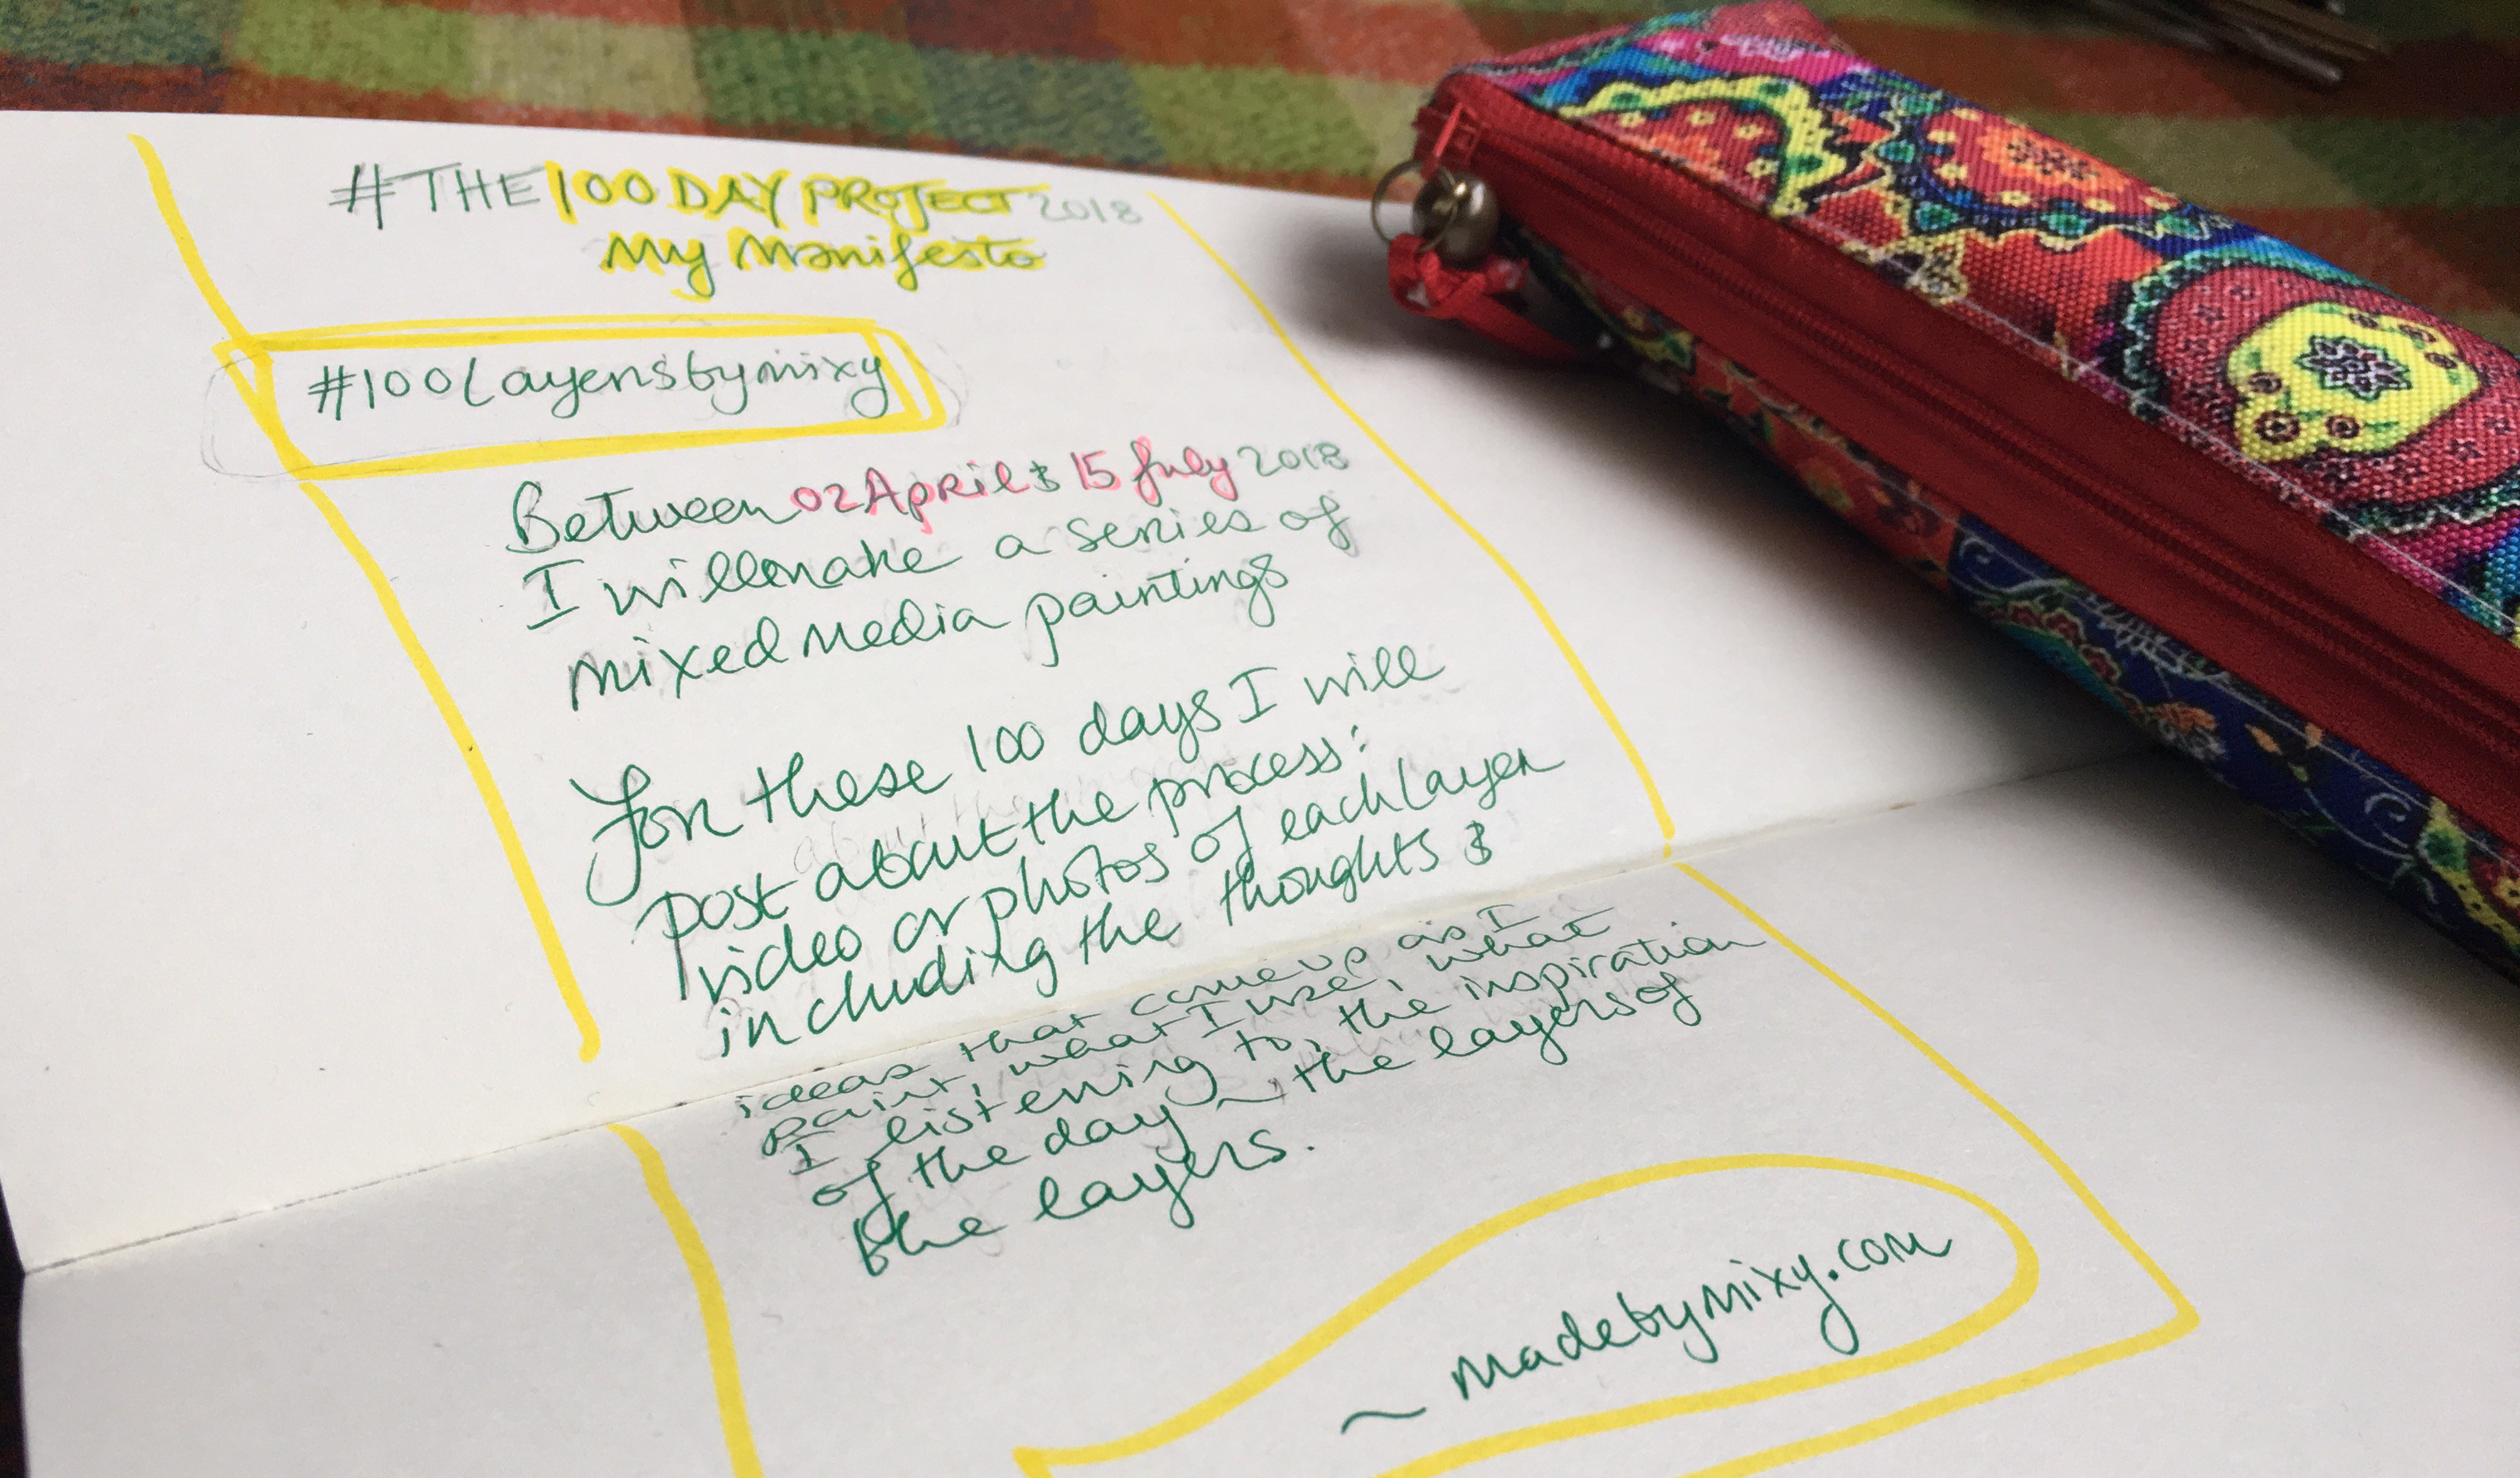 #THE 100 DAY PROJECT 2018
My Manifesto
#100Layersbymixy
Between 02 April & 15 July 2018
I will make a series of
mixed media paintings
For these 100 days I will
post about the process:
video or photos of each layer
including the thoughts &
ideas that come up as I
paint, what I use, what
I listening to, the inspiration
of the day ~ the layers of
the layers.
~ madebymixy.com